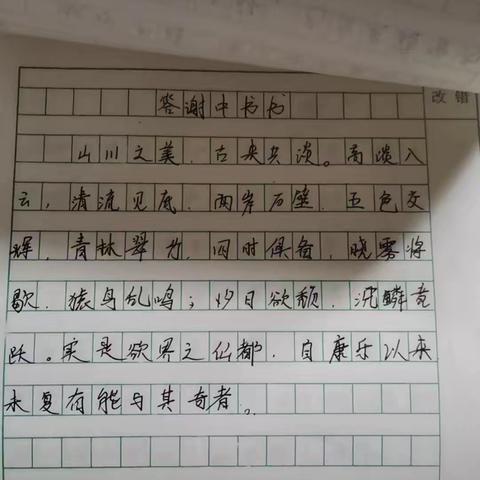 答谢中书书
改错
山川之美，古来共谈。高淡入
云，清流见底。两岸石壁，五色交
辉，青林翠竹，四时俱备，晓雾将
歇，猿鸟乱鸣；夕日欲颓，沉鳞竞
跃。实是欲界之仙都，自康乐以来
未复有能与其奇者。